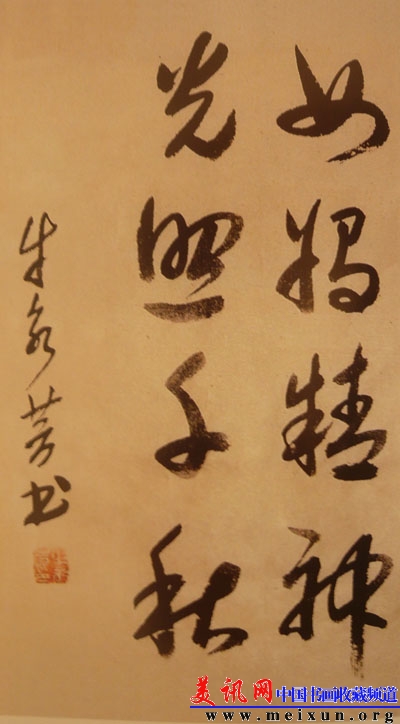 女娲精神
光照千秋
芳书
美讯网 中国书画收藏频道
www.meixun.org